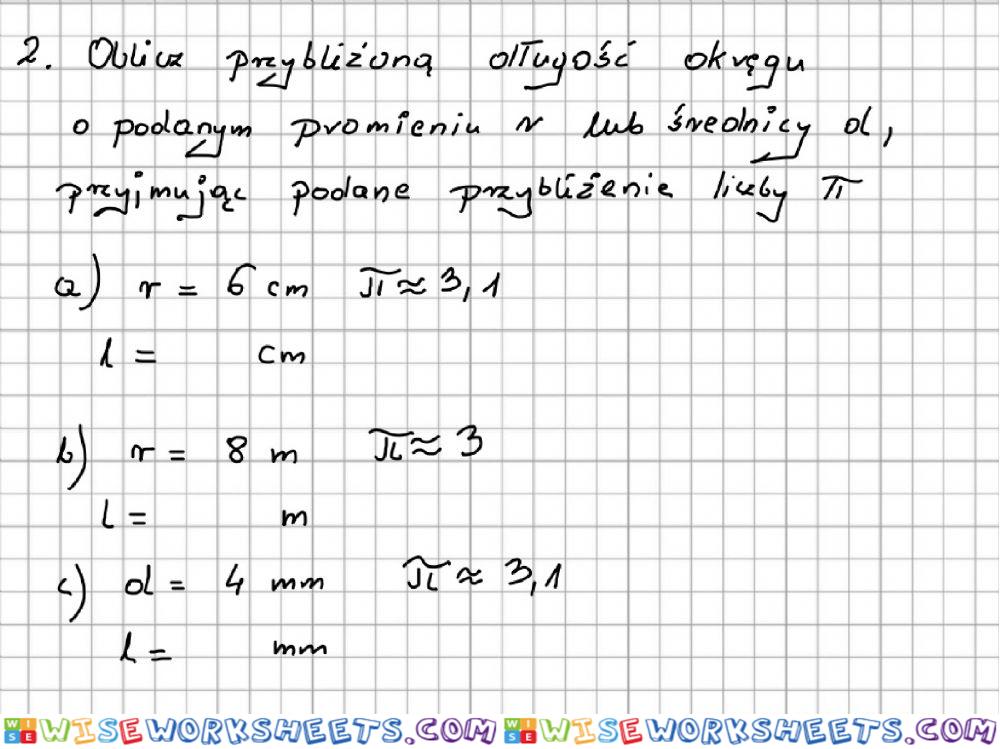 2. Oblicz przybliżoną długość okręgu
o podanym promieniu r lub średnicy d,
przyjmując podane przybliżenie liczby π
a) r = 6 cm π ≈ 3,1
l = cm
b) r = 8 m π ≈ 3
l = m
c) d = 4 mm π ≈ 3,1
l = mm
WISEWORKSHEETS.COM WISEWORKSHEETS.COM